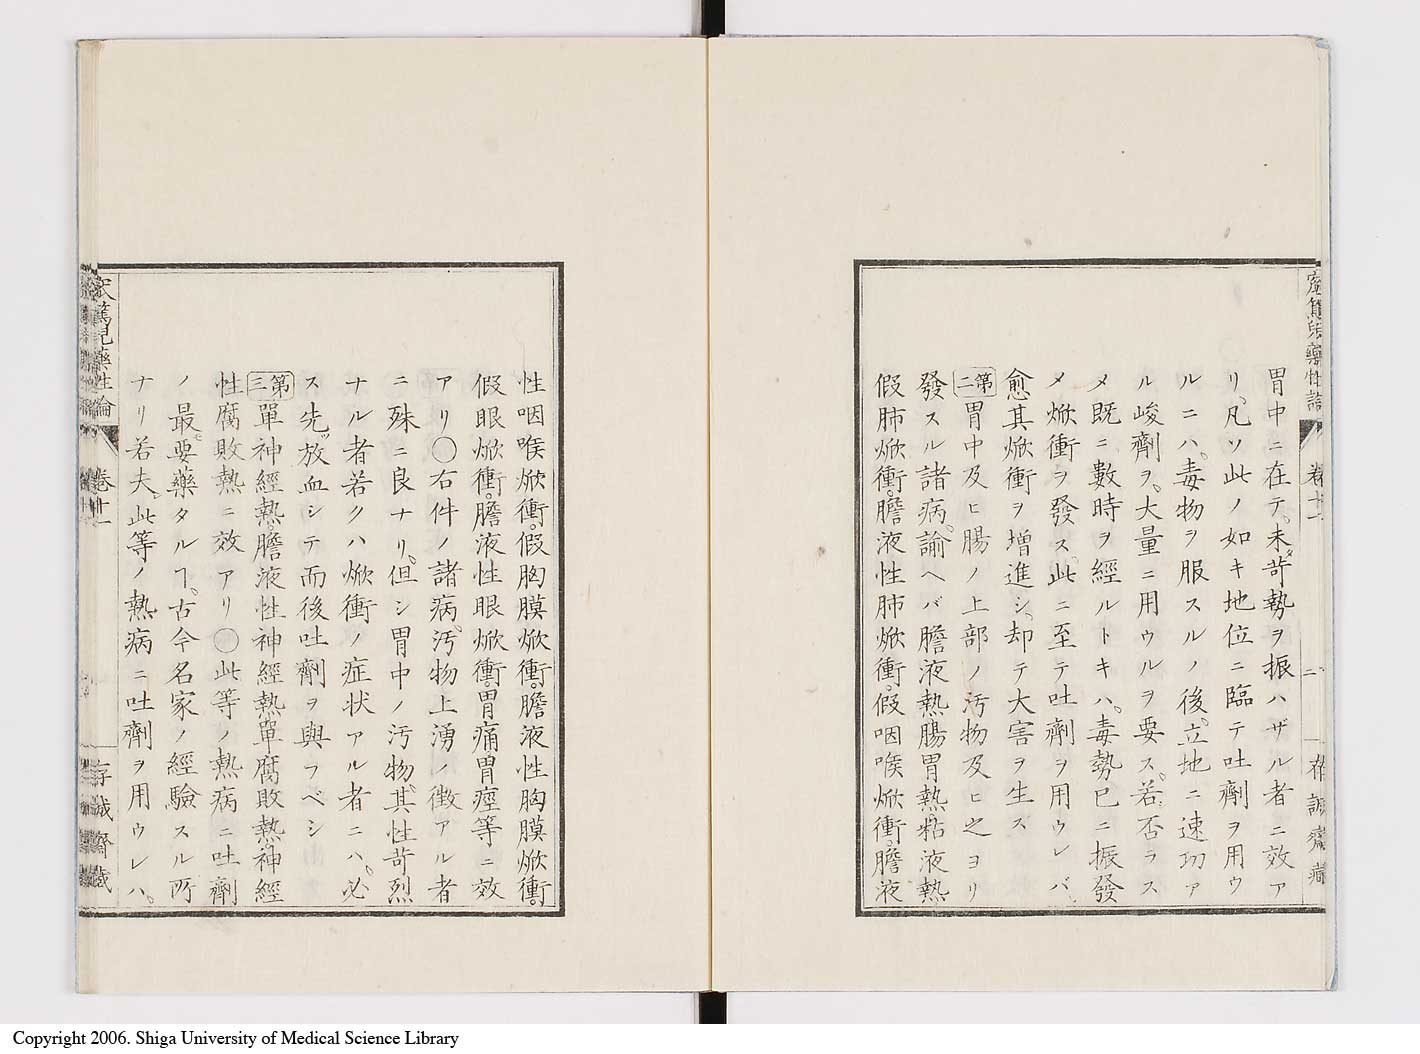 胃中ニ在テ。未ダ苛勢ヲ振ハザル者ニ效ア
リ。凡ソ此ノ如キ地位ニ臨テ吐劑ヲ用ウ
ルニハ。毒物ヲ服スルノ後。立地ニ速功ア
ル峻劑ヲ。大量ニ用ウルヲ要ス。若否ラス
メ既ニ數時ヲ經ルトキハ。毒勢巳ニ振發
メ焮衝ヲ發ス。此ニ至テ吐劑ヲ用ウレバ
愈其焮衝ヲ增進シ。却テ大害ヲ生ス
第二胃中及ヒ腸ノ上部ノ汚物及ヒ之ヨリ
發スル諸病。諭ヘバ膽液熱。腸胃熱。粘液熱
假肺焮衝。膽液性肺焮衝。假咽喉焮衝。膽液
性咽喉焮衝。假胸膜焮衝。膽液性胸膜焮衝。
假眼焮衝。膽液性眼焮衝。胃痛胃痙等ニ效
アリ○右件ノ諸病。汚物上湧ノ徴アル者
ニ殊ニ良ナリ。但シ胃中ノ汚物。其性苛烈
ナル者若クハ焮衝ノ症状アル者ニハ。必
ス先ッ放血シテ而後吐劑ヲ與フベシ
第三單神經熱。膽液性神經熱單腐敗熱。神經
性腐敗熱ニ效アリ○此等ノ熱病ニ吐劑
ノ最モ要藥タルヿ。古今名家ノ經驗スル所
ナリ若夫。此等ノ熱病ニ吐劑ヲ用ウレハ。
藥性論
卷十一
二
存誠齋藏
篤兒藥性論
卷十一
存誠齋藏
Copyright 2006. Shiga University of Medical Science Library